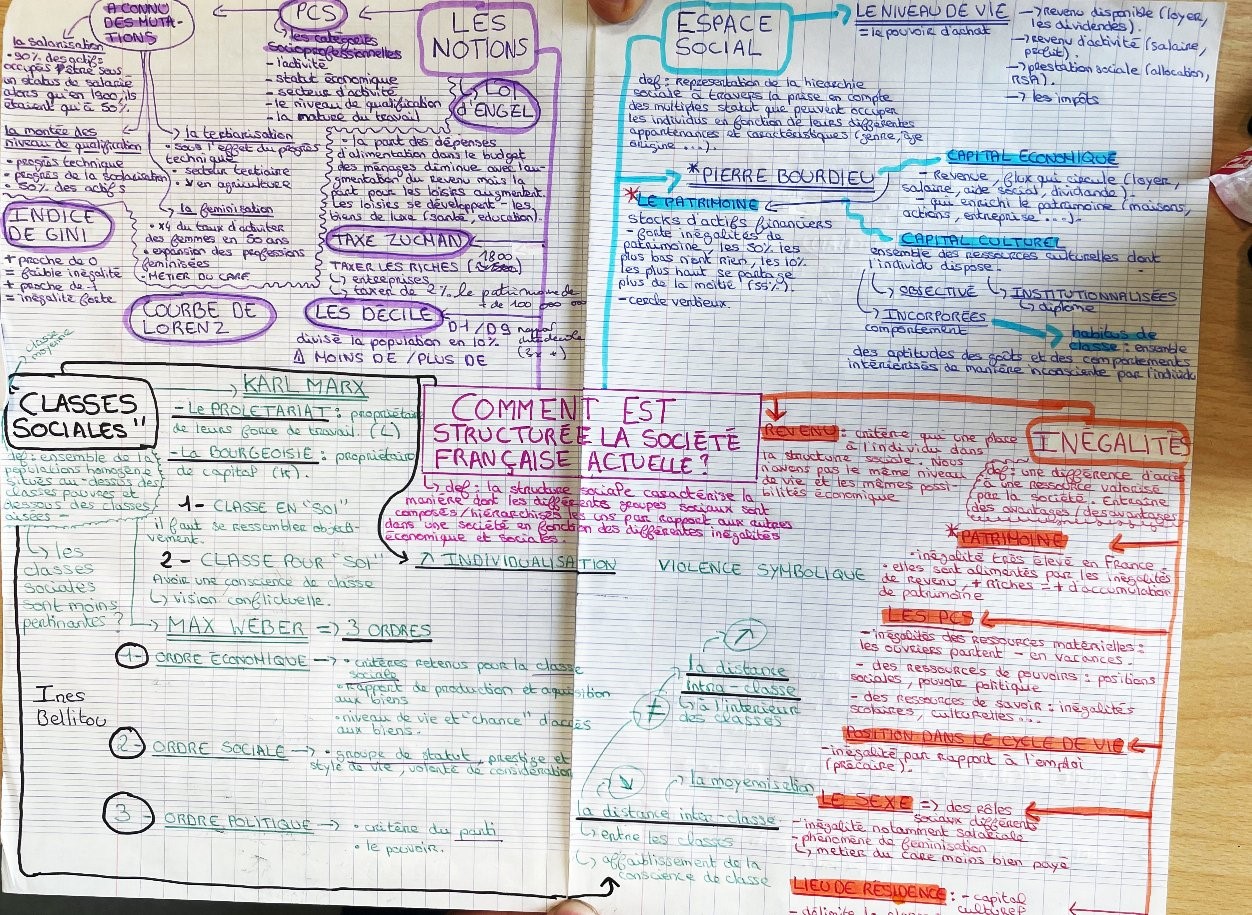 A CONNU
DES MUTA-
TIONS
la salarisation
• 90% des actifs
occupés
un status de salarié
alors qu'en 1900, ils
étaient qu'à 50%.
la montée des
niveau de qualification
• progrès technique
• progrès de la scolarisation
• 50% des actifs
↳ la tertiarisation
• sous l'effet du progrès
technique
• secteur tertiaire
• ↘ en agriculture
↳ la féminisation
• x4 du taux d'activiter
des femmes en 50 ans
• expansion des professions
féminisées
• METIER DU CARE
PCS
les catégories
Socioprofessionnelles
- l'activité
- statut économique
- secteur d'activité
- le niveau de qualification
- la nature du travail
LES
NOTIONS
LOI
d'ENGEL
• la part des dépenses
d'alimentation dans le budget
des ménages diminue avec l'au-
gmentation du revenu mais la
part pour les loisirs augmentent.
Les loisirs se développent - les
biens de luxe (santé, education).
TAXE ZUCMAN
TAXER LES RICHES (1800
↳ entreprises
↳ taxer de 2% le patrimoine de
+ de 100 000 000
LES DECILE
D1/D9
divise la population en 10%
⚠ MOINS DE / PLUS DE
INDICE
DE GINI
+ proche de 0
= faible inégalité
+ proche de 1
= inégalité forte
COURBE DE
LORENZ
ESPACE
SOCIAL
def: Représentation de la hiérarchie
sociale à travers la prise en compte
des multiples statut que peuvent occuper
les individus en fonction de leurs différentes
appartenances et caractéristiques (genre, âge
origine ...).
LE NIVEAU DE VIE
= le pouvoir d'achat
→ revenu disponible (loyer,
les dividendes).
→ revenu d'activité (salaire,
profit).
→ prestation sociale (allocation,
RSA).
→ les impôts
* PIERRE BOURDIEU
* LE PATRIMOINE
stocks d'actifs financiers
- forte inégalités de
patrimoine, les 50% les
plus bas n'ont rien, les 10%
les plus haut se partage
plus de la moitié (55%).
- cercle vertieux.
CAPITAL ECONOMIQUE
- Revenue, flux qui circule (loyer,
salaire, aide social, dividande).
- qui enrichi le patrimoine (maisons,
actions, entreprise ...).
CAPITAL CULTUREL
ensemble des ressources culturelles dont
l'individu dispose:
↳ OBJECTIVÉ
↳ INSTITUTIONNALISÉES
↳ diplôme
↳ INCORPORÉES
comportement
habitus de
classe: ensemble
des aptitudes des goûts et des comportements
intériorisés de manière inconsciente par l'individu
classe
moyenne
"CLASSES
SOCIALES"
def: ensemble de la
populations homogène
situés au-dessus des
classes pauvres et
dessous des classes
aisées.
↳ les
classes
sociales
sont moins
pertinantes?
KARL MARX
- Le PROLETARIAT: propriétaire
de leurs force de travail. (L)
- La BOURGEOISIE: propriétaire
de capital (K).
1- CLASSE EN "SOI"
il faut se ressembler object-
ivement.
2- CLASSE POUR "SOI"
Avoir une conscience de classe
↳ vision conflictuelle.
MAX WEBER => 3 ORDRES
1- ORDRE ÉCONOMIQUE → • critères retenus pour la classe
sociale
• Rapport de production et aquisition
aux biens
• niveau de vie et "chance" d'accès
aux biens.
2- ORDRE SOCIALE → • groupe de statut, prestige et
style de vie, volonté de considération
3- ORDRE POLITIQUE → • critère du parti
• le pouvoir.
Ines
Bellitou
COMMENT EST
STRUCTURÉE LA SOCIÉTÉ
FRANÇAISE ACTUELLE?
↳ def: la structure sociale caractérise la
manière dont les différentes groupes sociaux sont
composés/hiérarchisés les uns par rapport aux autres
dans une société en fonction des différentes inégalités
économique et sociales.
↗ INDIVIDUALISATION
VIOLENCE SYMBOLIQUE
↗
la distance
intra-classe
↳ à l'intérieur
des classes
≠
↘
la moyennisation
la distance inter-classe
↳ entre les classes
↳ affaiblissement de la
conscience de classe
INÉGALITÉS
def: une différence d'accès
à une ressource valorisée
par la société. Entraine
des avantages/desavantages
REVENU: critère qui une place
à l'individu dans
la structure sociale. Nous
n'avons pas le même niveau
de vie et les mêmes possi-
bilités économique
* PATRIMOINE
• inégalité très élevé en France
• elles sont alimentés par les inégalités
de revenu, + riches = + d'accumulation
de patrimoine
LES PCS
- inégalités des ressources matérielles:
les ouvriers partent - en vacances.
- des ressources de pouvoirs: positions
sociales, pouvoir politique
- des ressources de savoir: inégalités
scolaires, culturelles...
POSITION DANS LE CYCLE DE VIE
- inégalité par rapport à l'emploi
(précaire).
LE SEXE => des rôles
sociaux différents
- inégalité notamment salariale
- phénomène de féminisation
↳ métier du care moins bien payé
LIEU DE RÉSIDENCE: - capital
culturel